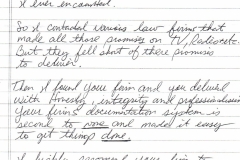 I ever encountered.
So I contacted various law firms that
made all those promises on TV, Radio, etc.
But they fell short of there promises
to deliver.
Then I found your firm and you delivered
with honesty, integrity and professionalism
Your firms documentation system is
second to none and made it easy
to get things done.
I highly recommend your firm to